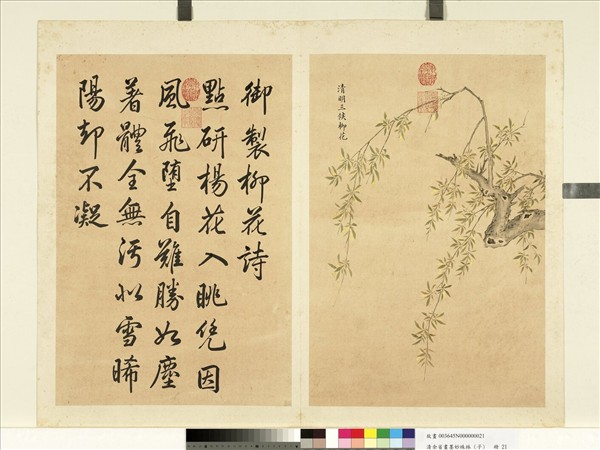 清明三候柳花
御製柳花詩
點研楊花入眺凭因
風飛墮自難勝如塵
著體全無污似雪晞
陽却不凝
故畫 003645N000000021
清余省畫墨妙珠林（子） 冊 21